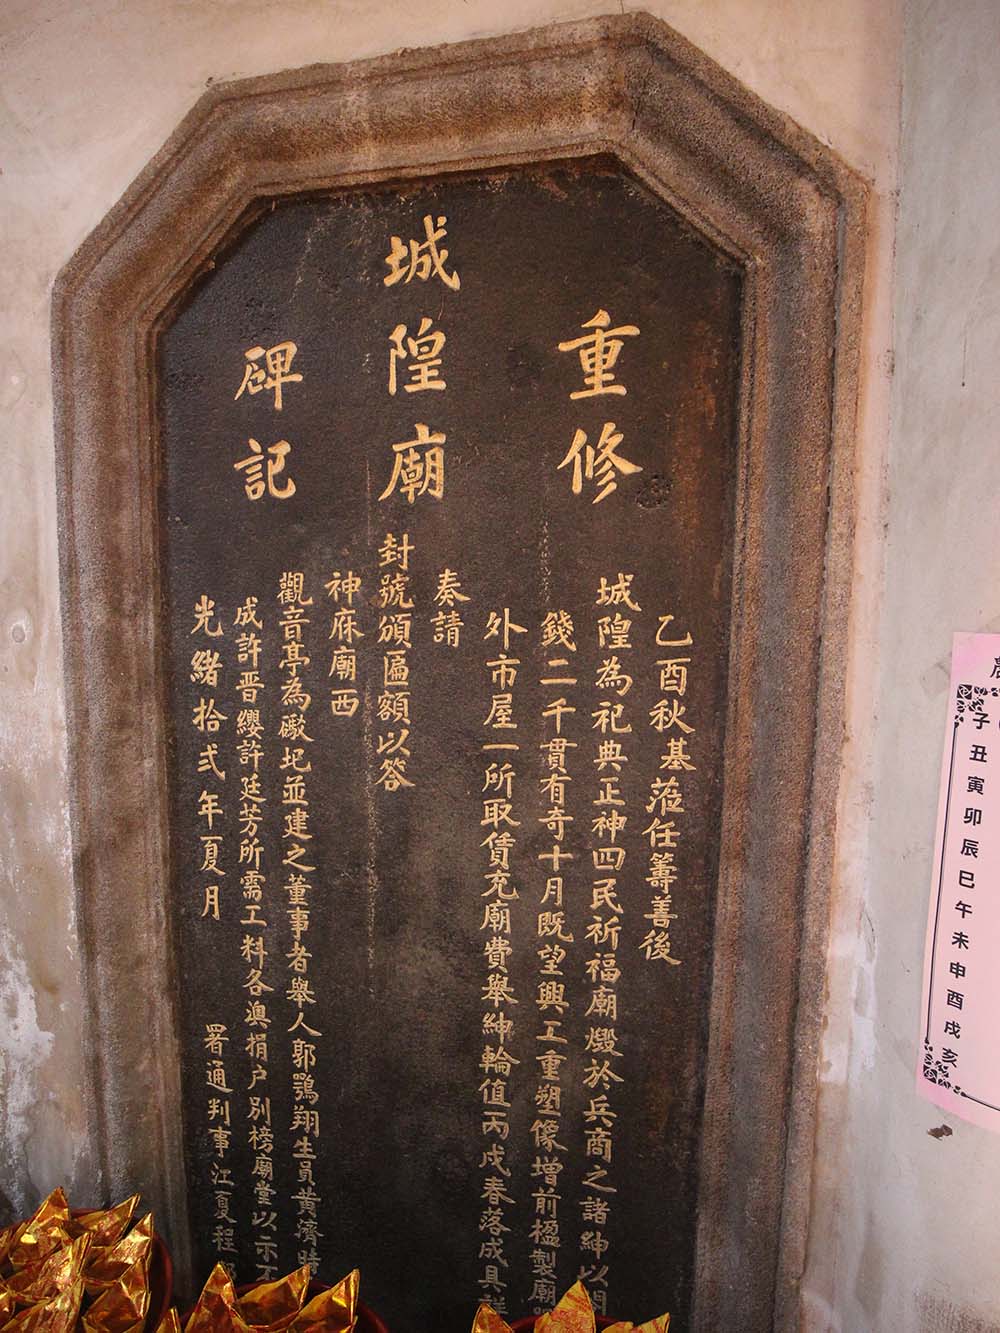 重修
城隍廟
碑記
乙酉秋基蒞任籌善後
城隍為祀典正神四民祈福廟燬於兵商之諸紳以閤
錢二千貫有奇十月既望興工重塑像增前楹製廟
外市屋一所取賃充廟費舉紳輪值丙戌春落成具詳
奏請
封號頒匾額以答
神庥廟西
觀音亭為礮圮並建之董事者舉人郭鶚翔生員黃濟時
成許晋纓許廷芳所需工料各澳捐户別榜廟堂以示不
光緒拾弍年夏月 署通判事江夏程
子丑寅卯辰巳午未申酉戌亥